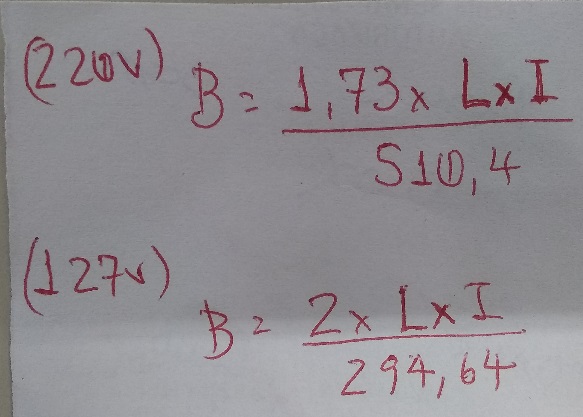 (220V) B = 1,73 x L x I
510,4
(127V) B = 2 x L x I
294,64